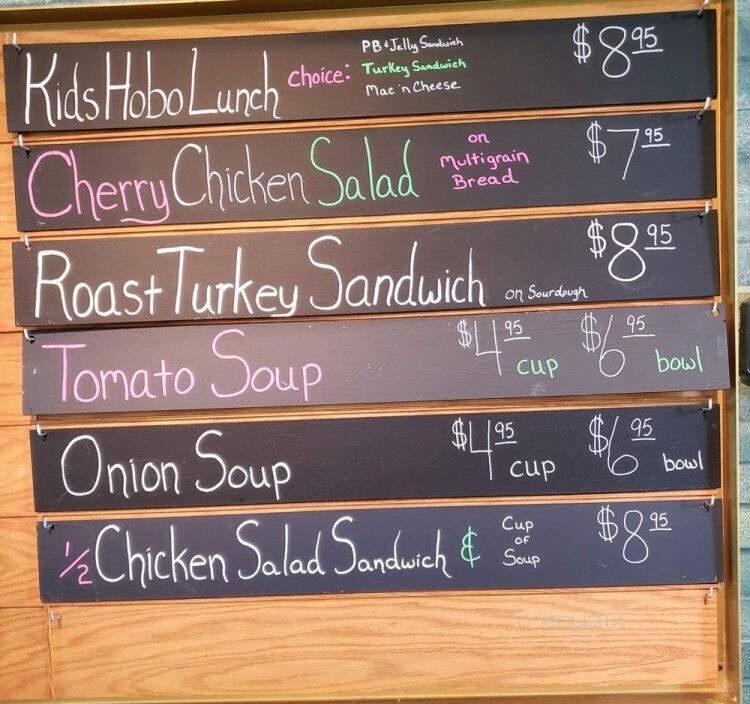 Kids Hobo Lunch choice: PB & Jelly Sandwich $8.95
Turkey Sandwich
Mac 'n Cheese
Cherry Chicken Salad on Multigrain Bread $7.95
Roast Turkey Sandwich on Sourdough $8.95
Tomato Soup $4.95 cup $6.95 bowl
Onion Soup $4.95 cup $6.95 bowl
1/2 Chicken Salad Sandwich & Cup of Soup $8.95